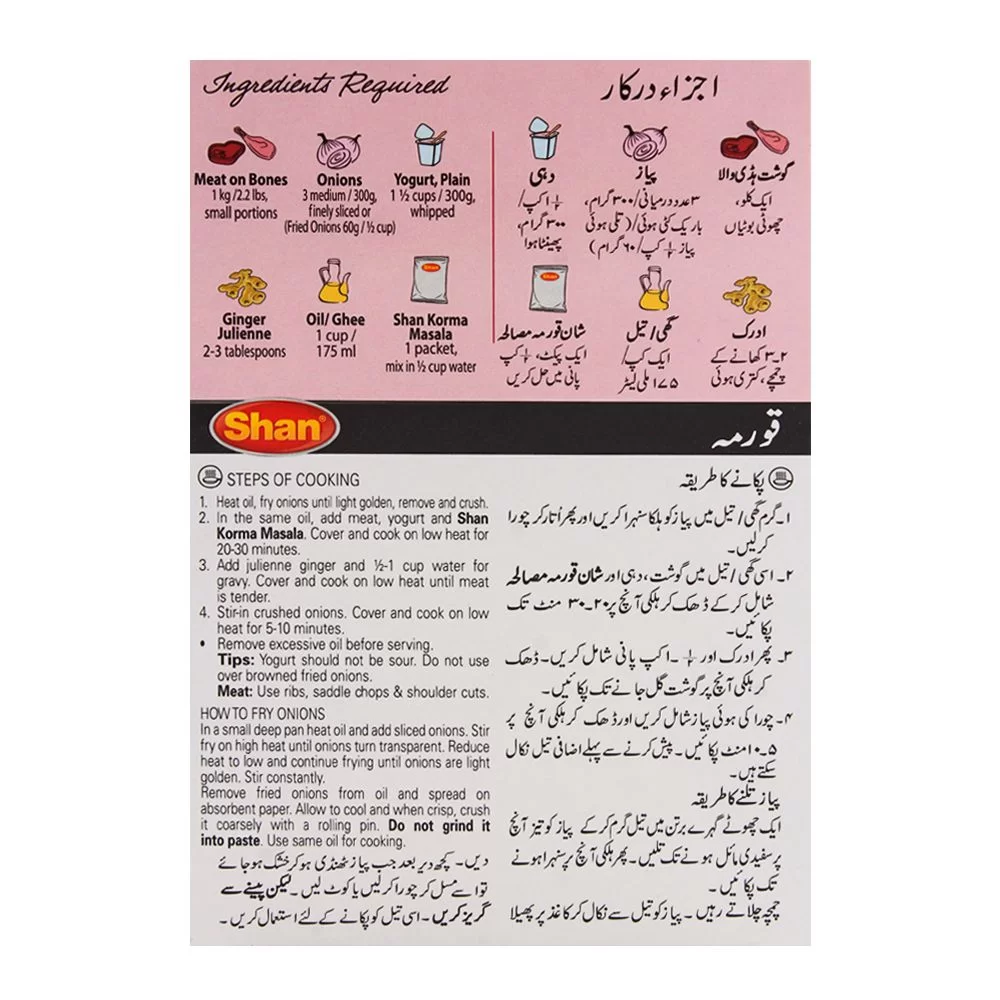 Ingredients Required
Meat on Bones
1 kg /2.2 lbs,
small portions
Onions
3 medium / 300g,
finely sliced or
(Fried Onions 60g / ½ cup)
Yogurt, Plain
1 ½ cups / 300g,
whipped
Ginger
Julienne
2-3 tablespoons
Oil/ Ghee
1 cup /
175 ml
Shan
Shan Korma
Masala
1 packet,
mix in ½ cup water
اجزاء درکار
گوشت ہڈی والا
ایک کلو،
چھوٹی بوٹیاں
پیاز
۳ عدد درمیانی/ ۳۰۰ گرام،
باریک کٹی ہوئی/ (تلی ہوئی
پیاز ½ کپ/ ۶۰ گرام)
دہی
½ ۱ کپ/
۳۰۰ گرام،
پھینٹا ہوا
ادرک
۲-۳ کھانے کے
چمچے، کتری ہوئی
گھی/ تیل
ایک کپ/
۱۷۵ ملی لیٹر
Shan
شان قورمہ مصالحہ
ایک پیکٹ، ½ کپ
پانی میں حل کریں
Shan®
قورمہ
STEPS OF COOKING
1. Heat oil, fry onions until light golden, remove and crush.
2. In the same oil, add meat, yogurt and Shan
Korma Masala. Cover and cook on low heat for
20-30 minutes.
3. Add julienne ginger and ½-1 cup water for
gravy. Cover and cook on low heat until meat
is tender.
4. Stir-in crushed onions. Cover and cook on low
heat for 5-10 minutes.
• Remove excessive oil before serving.
Tips: Yogurt should not be sour. Do not use
over browned fried onions.
Meat: Use ribs, saddle chops & shoulder cuts.
HOW TO FRY ONIONS
In a small deep pan heat oil and add sliced onions. Stir
fry on high heat until onions turn transparent. Reduce
heat to low and continue frying until onions are light
golden. Stir constantly.
Remove fried onions from oil and spread on
absorbent paper. Allow to cool and when crisp, crush
it coarsely with a rolling pin. Do not grind it
into paste. Use same oil for cooking.
پکانے کا طریقہ
۱۔ گرم گھی/ تیل میں پیاز کو ہلکا سنہرا کریں اور پھر اتار کر چورا
کرلیں۔
۲۔ اسی گھی/ تیل میں گوشت، دہی اور شان قورمہ مصالحہ
شامل کرکے ڈھک کر ہلکی آنچ پر ۲۰-۳۰ منٹ تک
پکائیں۔
۳۔ پھر ادرک اور ½ -۱ کپ پانی شامل کریں۔ ڈھک
کر ہلکی آنچ پر گوشت گل جانے تک پکائیں۔
۴۔ چورا کی ہوئی پیاز شامل کریں اور ڈھک کر ہلکی آنچ پر
۵-۱۰ منٹ پکائیں۔ پیش کرنے سے پہلے اضافی تیل نکال
سکتے ہیں۔
پیاز تلنے کا طریقہ
ایک چھوٹے گہرے برتن میں تیل گرم کرکے پیاز کو تیز آنچ
پر سفیدی مائل ہونے تک تلیں۔ پھر ہلکی آنچ پر سنہرا ہونے
تک پکائیں۔
چمچہ چلاتے رہیں۔ پیاز کو تیل سے نکال کر کاغذ پر پھیلا
دیں۔ کچھ دیر بعد جب پیاز ٹھنڈی ہو کر خشک ہو جائے
تو اسے مسل کر چورا کرلیں یا کوٹ لیں۔ لیکن پیسنے سے
گریز کریں۔ اسی تیل کو پکانے کے لئے استعمال کریں۔